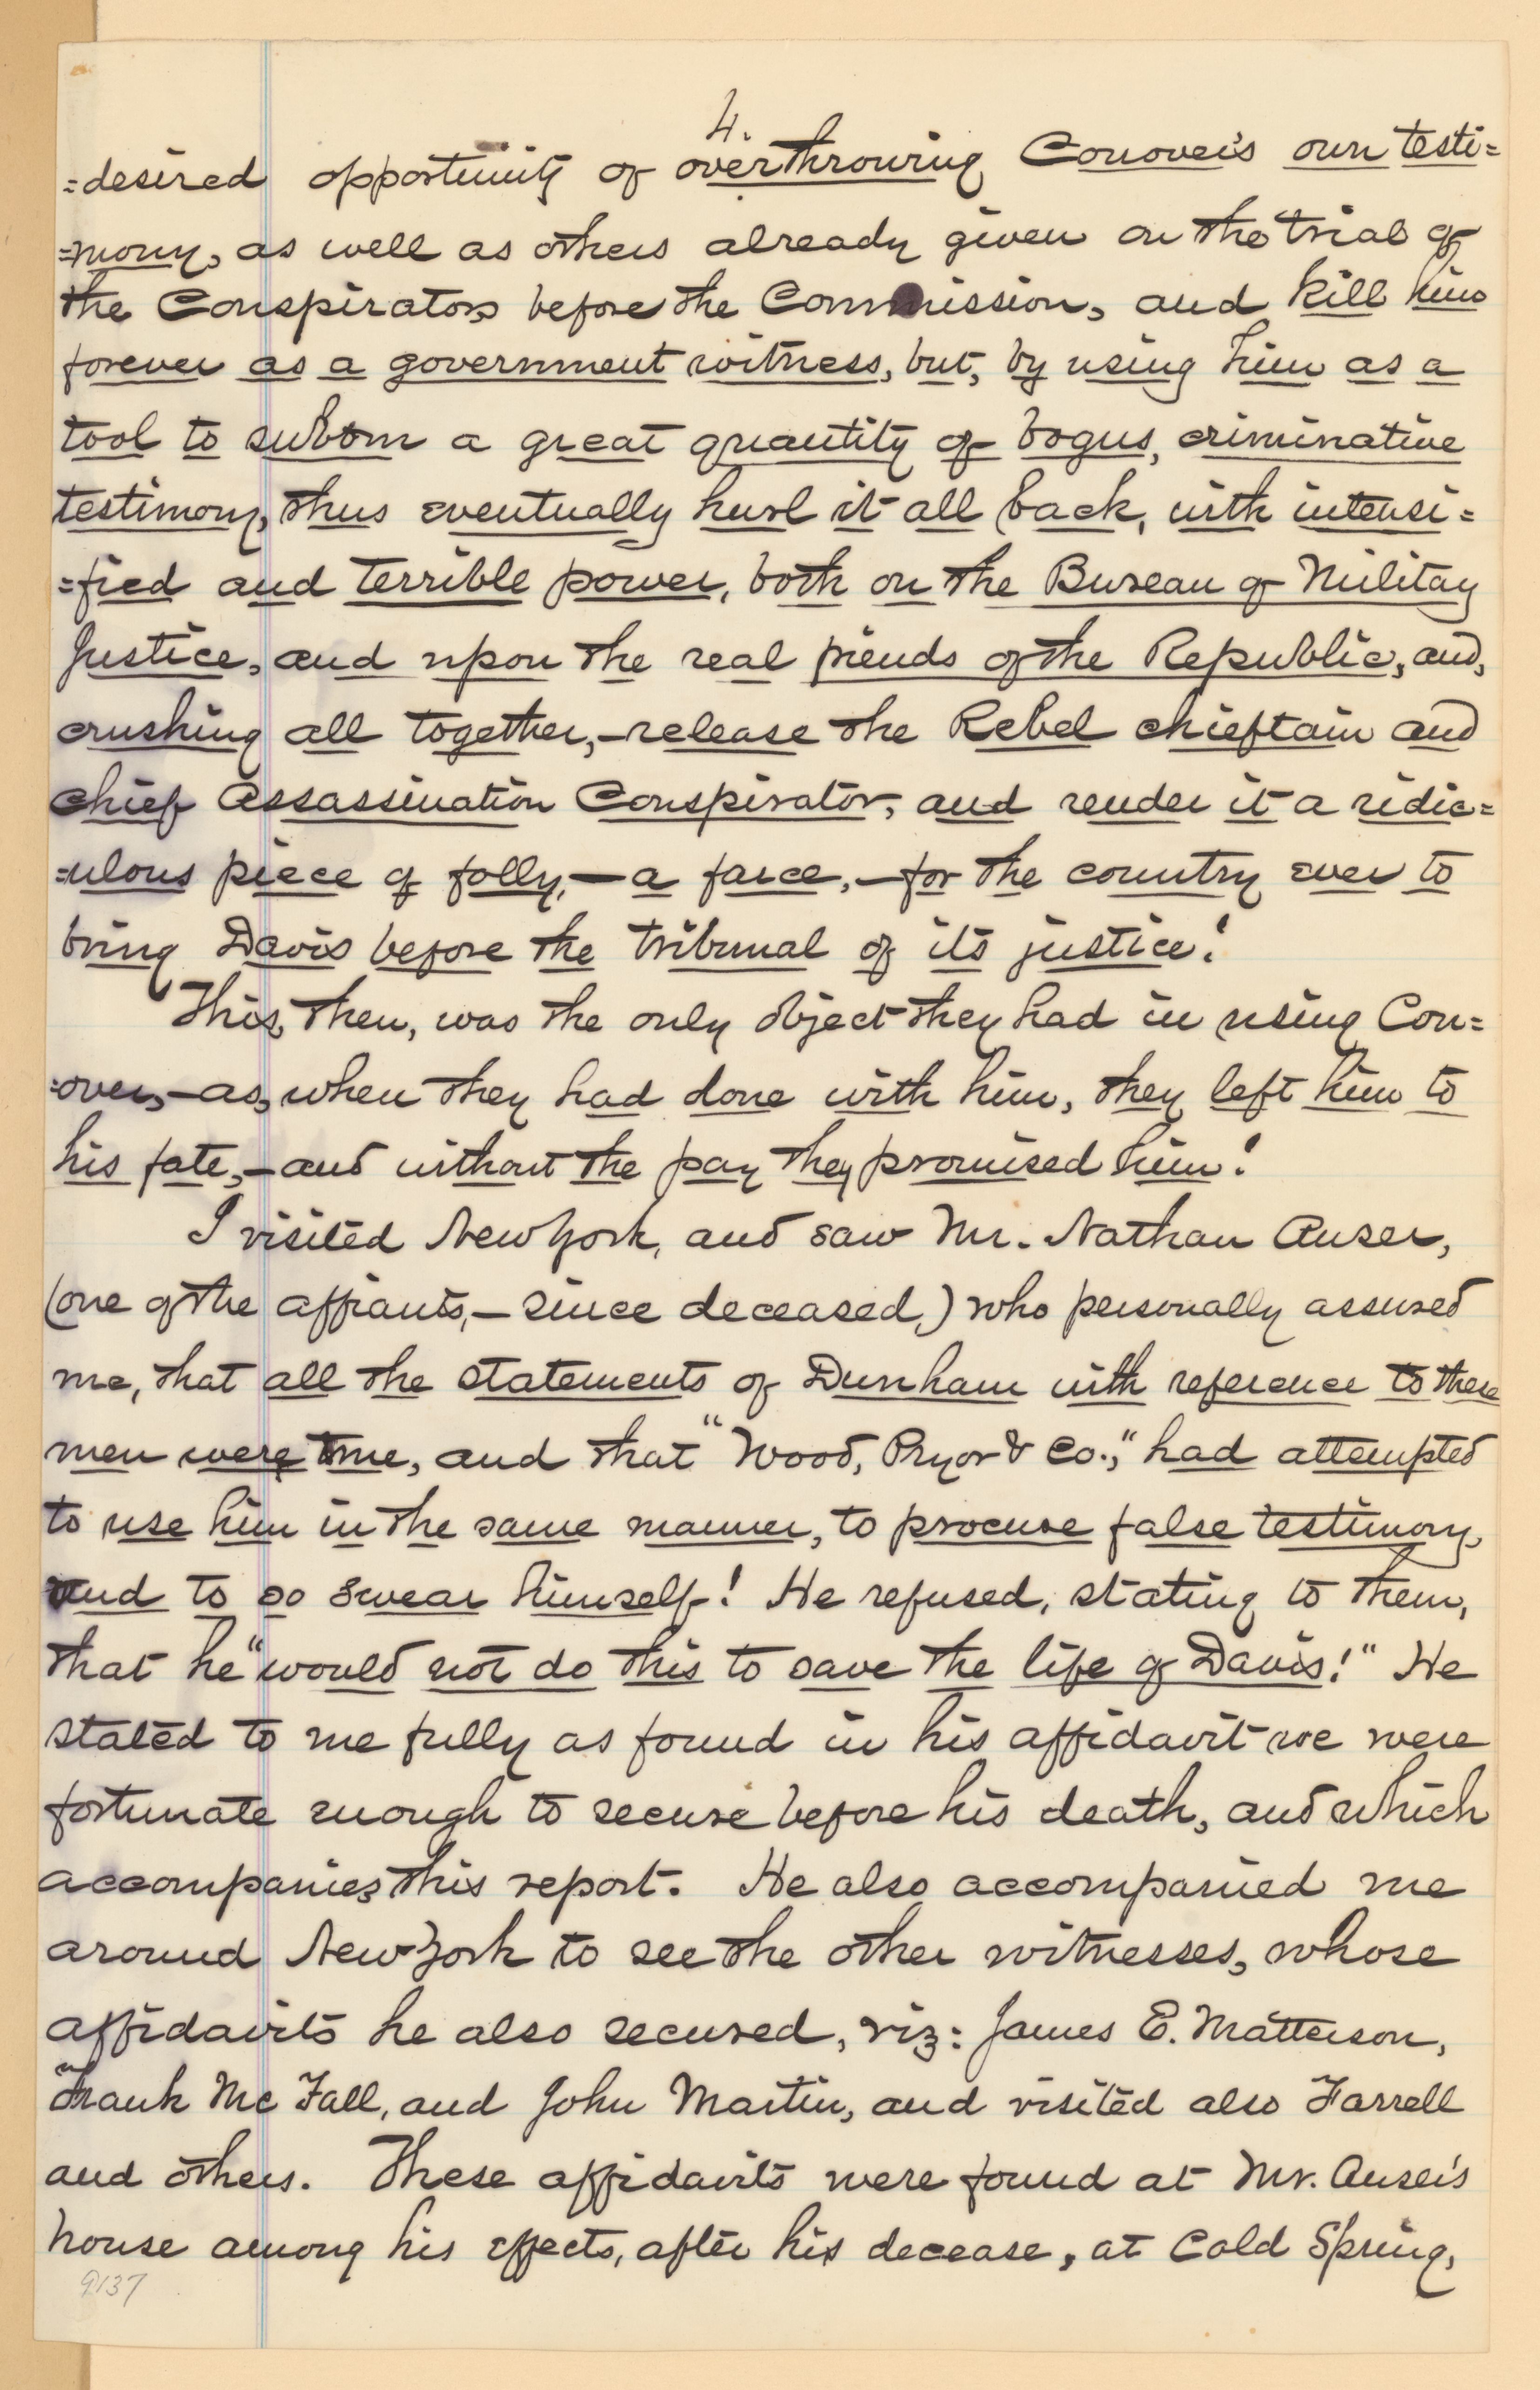 4.
=desired opportunity of overthrowing Conover's own testi=
=mony, as well as others already given on the trial of
the Conspirators before the Commission, and kill him
forever as a government witness, but, by using him as a
tool to suborn a great quantity of bogus, criminative
testimony, thus eventually hurl it all back, with intensi=
=fied and terrible power, both on the Bureau of Military
Justice, and upon the real friends of the Republic, and,
crushing all together,—release the Rebel chieftain and
chief Assassination Conspirator, and render it a ridic=
=ulous piece of folly,—a farce,—for the country ever to
bring Davis before the tribunal of its justice!
This, then, was the only object they had in using Con=
=over,—as, when they had done with him, they left him to
his fate,—and without the pay they promised him!
I visited New York, and saw Mr. Nathan Auser,
(one of the affiants,—since deceased,) who personally assured
me, that all the statements of Dunham with reference to these
men were true, and that "Wood, Pryor & Co.," had attempted
to use him in the same manner, to procure false testimony,
and to so swear himself! He refused, stating to them,
that he "would not do this to save the life of Davis!" He
stated to me fully as found in his affidavit we were
fortunate enough to secure before his death, and which
accompanies this report. He also accompanied me
around New York to see the other witnesses, whose
affidavits he also secured, viz: James E. Matterson,
Frank Mc Fall, and John Martin, and visited also Farrell
and others. These affidavits were found at Mr. Auser's
house among his effects, after his decease, at Cold Spring,
9137